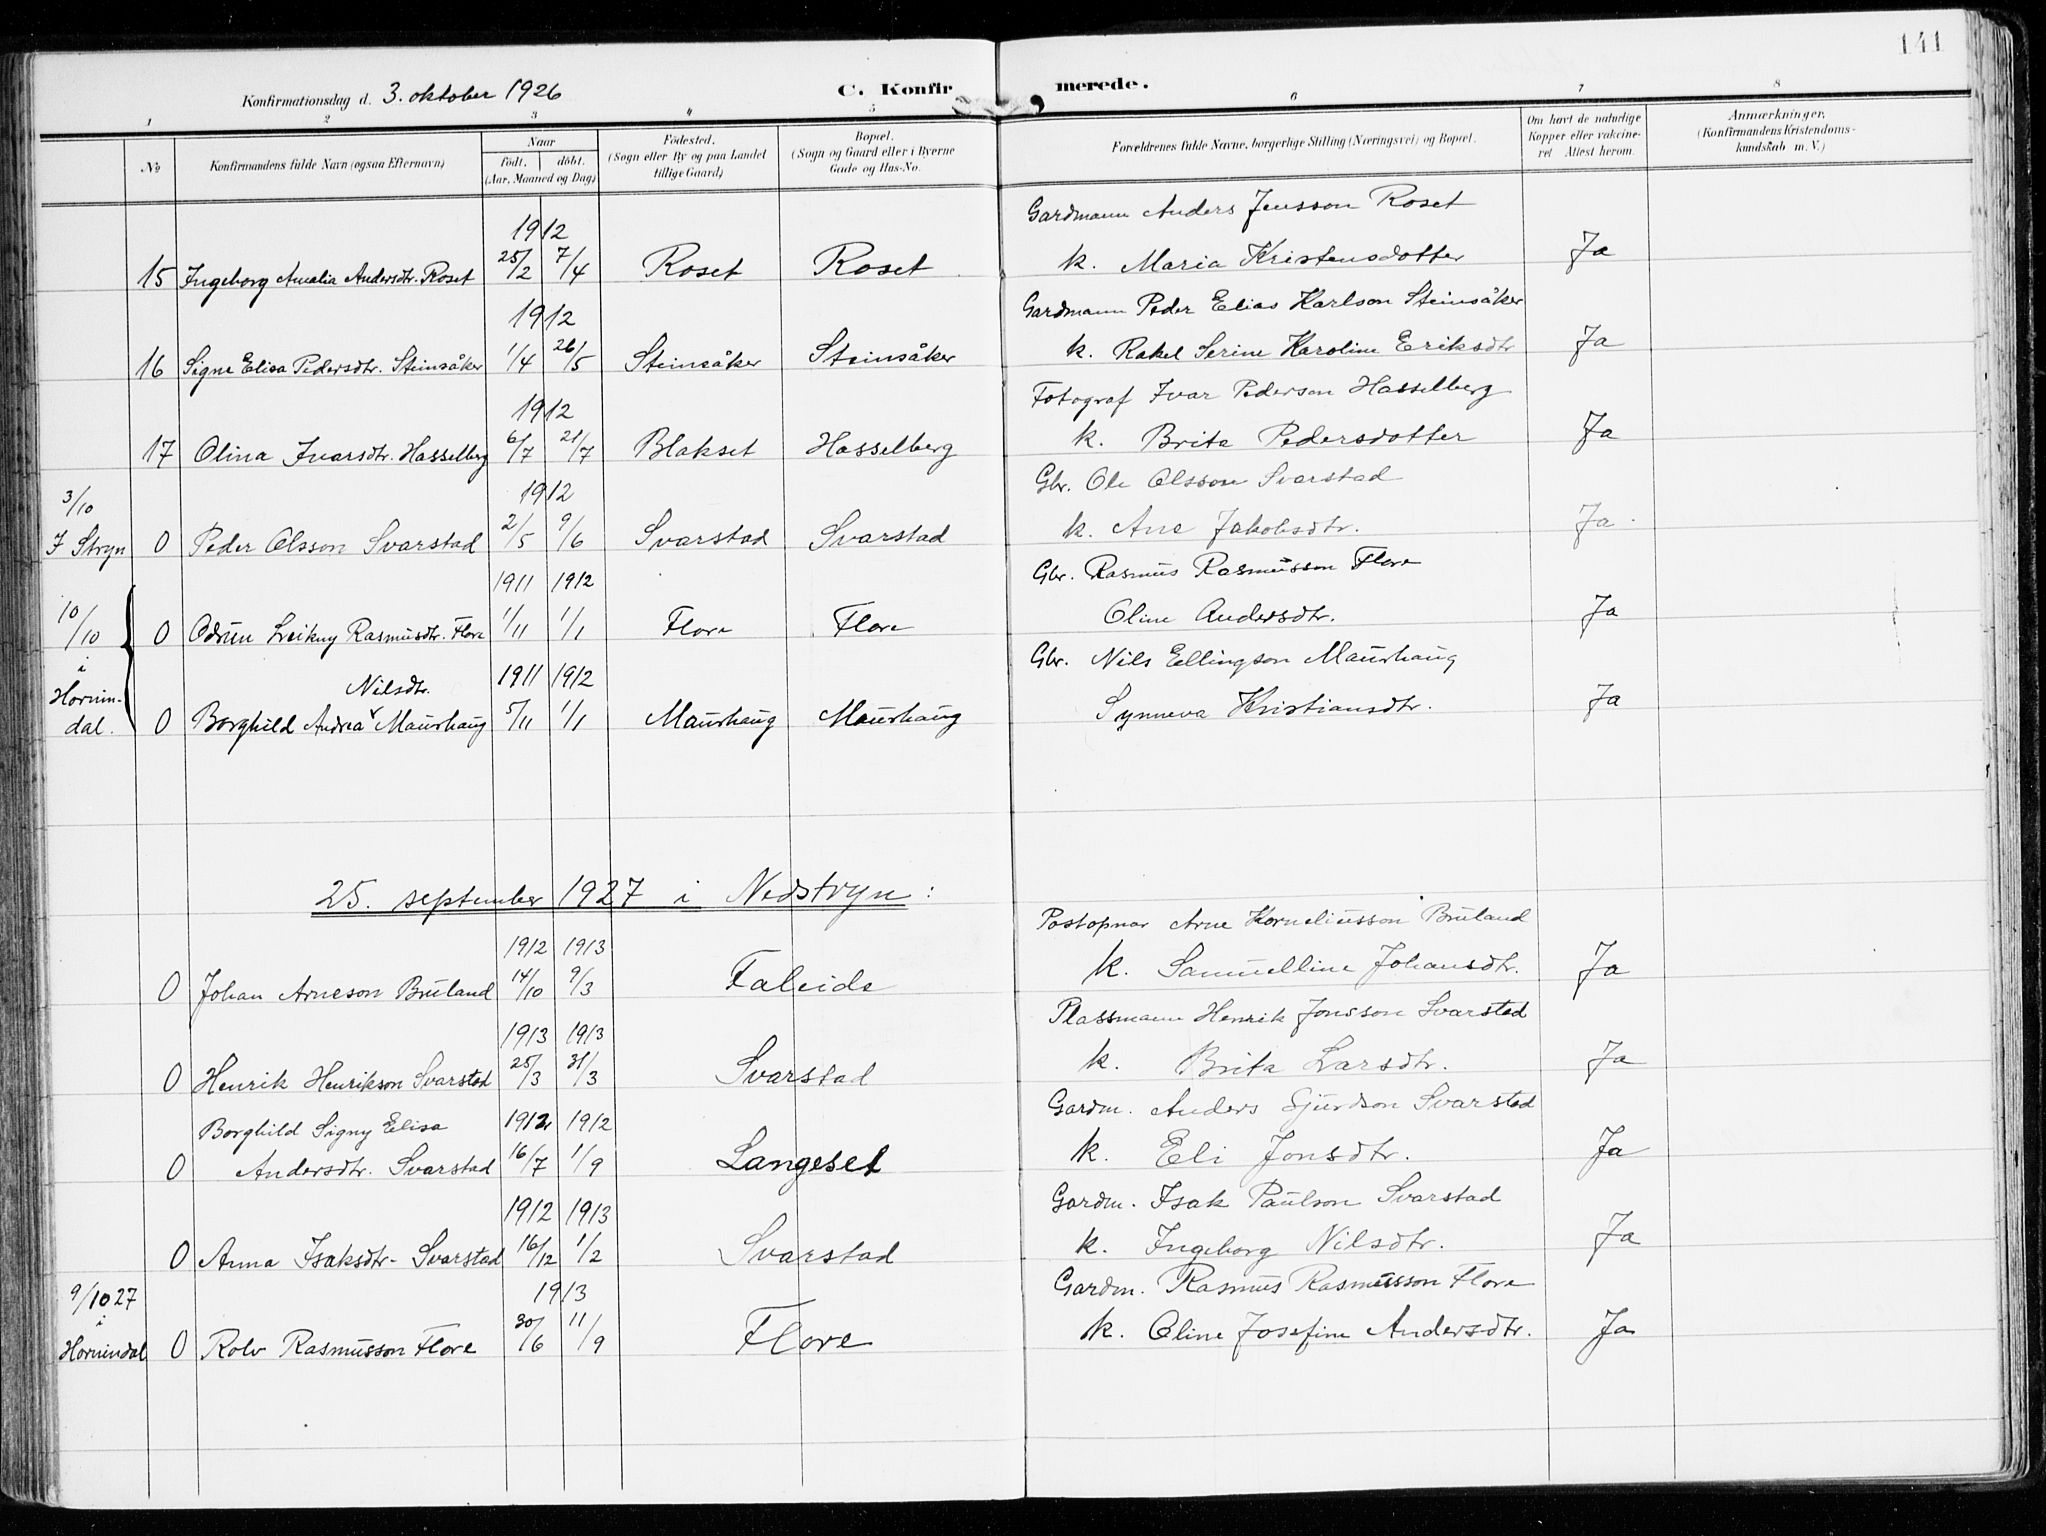 141
Konfirmationsdag d. 3. oktober 1926 C. Konfirmerede.
1 2 3 4 5 6 7 8
No
Konfirmandens fulde Navn (ogsaa Efternavn)
Naar
født. døbt.
(Aar, Maaned og Dag)
Fødested.
(Sogn eller By og paa Landet
tillige Gaard)
Bopæl.
(Sogn og Gaard eller i Byerne
Gade og Hus-No.
Forældrenes fulde Navne, borgerlige Stilling (Næringsvei) og Bopæl.
Om havt de naturlige
Kopper eller vakcine-
ret Attest herom.
Anmærkninger,
(Konfirmandens Kristendoms-
kundskab m. V.)
1912 Gardmann Anders Jensson Roset
15 Ingeborg Amalia Andersdtr. Roset 25/2 7/4 Roset Roset k. Maria Kristensdotter Ja
1912 Gardmann Peder Elias Karlson Steinsåker
16 Signe Elisa Pedersdtr. Steinsåker 1/4 26/5 Steinsåker Steinsåker k. Rakel Serine Karoline Eriksdtr Ja
1912 Fotograf Ivar Pederson Hasselberg
17 Olina Ivarsdtr. Hasselberg 6/7 21/7 Blakset Hasselberg k. Brita Pedersdotter Ja
3/10 1912 Gbr. Ole Olsson Svarstad
I Stryn 0 Peder Olsson Svarstad 2/5 9/6 Svarstad Svarstad k. Ane Jakobsdtr. Ja
1911 1912 Gbr. Rasmus Rasmusson Flore
10/10 0 Odrun Leikny Rasmusdtr. Flore 1/11 1/1 Flore Flore Oline Andersdtr. Ja
i Hornin- Nilsdtr. 1911 1912 Gbr. Nils Ellingson Maurhaug
dal. 0 Borghild Andrea Maurhaug 5/11 1/1 Maurhaug Maurhaug Synneva Kristiansdtr. Ja
25. september 1927 i Nedstryn:
1912 1913 Postopnar Arne Korneliusson Bruland
0 Johan Arneson Bruland 14/10 9/3 Faleide k. Samuelline Johansdtr. Ja
1913 1913 Plassmann Henrik Jonsson Svarstad
0 Henrik Henrikson Svarstad 25/3 31/3 Svarstad k. Brita Larsdtr. Ja
Borghild Signy Elisa 1912 1912 Gardm. Anders Sjurdson Svarstad
0 Andersdtr. Svarstad 16/7 1/9 Langeset k. Eli Jonsdtr. Ja
1912 1913 Gardm. Isak Paulson Svarstad
0 Anna Isaksdtr- Svarstad 16/12 1/2 Svarstad k. Ingeborg Nilsdtr. Ja
9/10 27 1913 Gardm. Rasmus Rasmusson Flore
i
Hornindal 0 Rolv Rasmusson Flore 30/6 11/9 Flore k. Oline Josefine Andersdtr. Ja